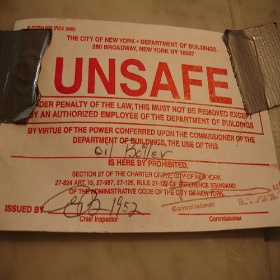 THE CITY OF NEW YORK • DEPARTMENT OF BUILDINGS
280 BROADWAY, NEW YORK NY 10007
UNSAFE
UNDER PENALTY OF THE LAW, THIS MUST NOT BE REMOVED EXCEPT
BY AN AUTHORIZED EMPLOYEE OF THE DEPARTMENT OF BUILDINGS
BY VIRTUE OF THE POWER CONFERRED UPON THE COMMISSIONER OF THE
DEPARTMENT OF BUILDINGS, THE USE OF THIS
Oil Boiler
IS HERE BY PROHIBITED.
SECTION 27 OF THE CHARTER OF THE CITY OF NEW YORK
OF THE ADMINISTRATIVE CODE OF THE CITY OF NEW YORK
ISSUED BY 1952
Chief Inspector Commissioner